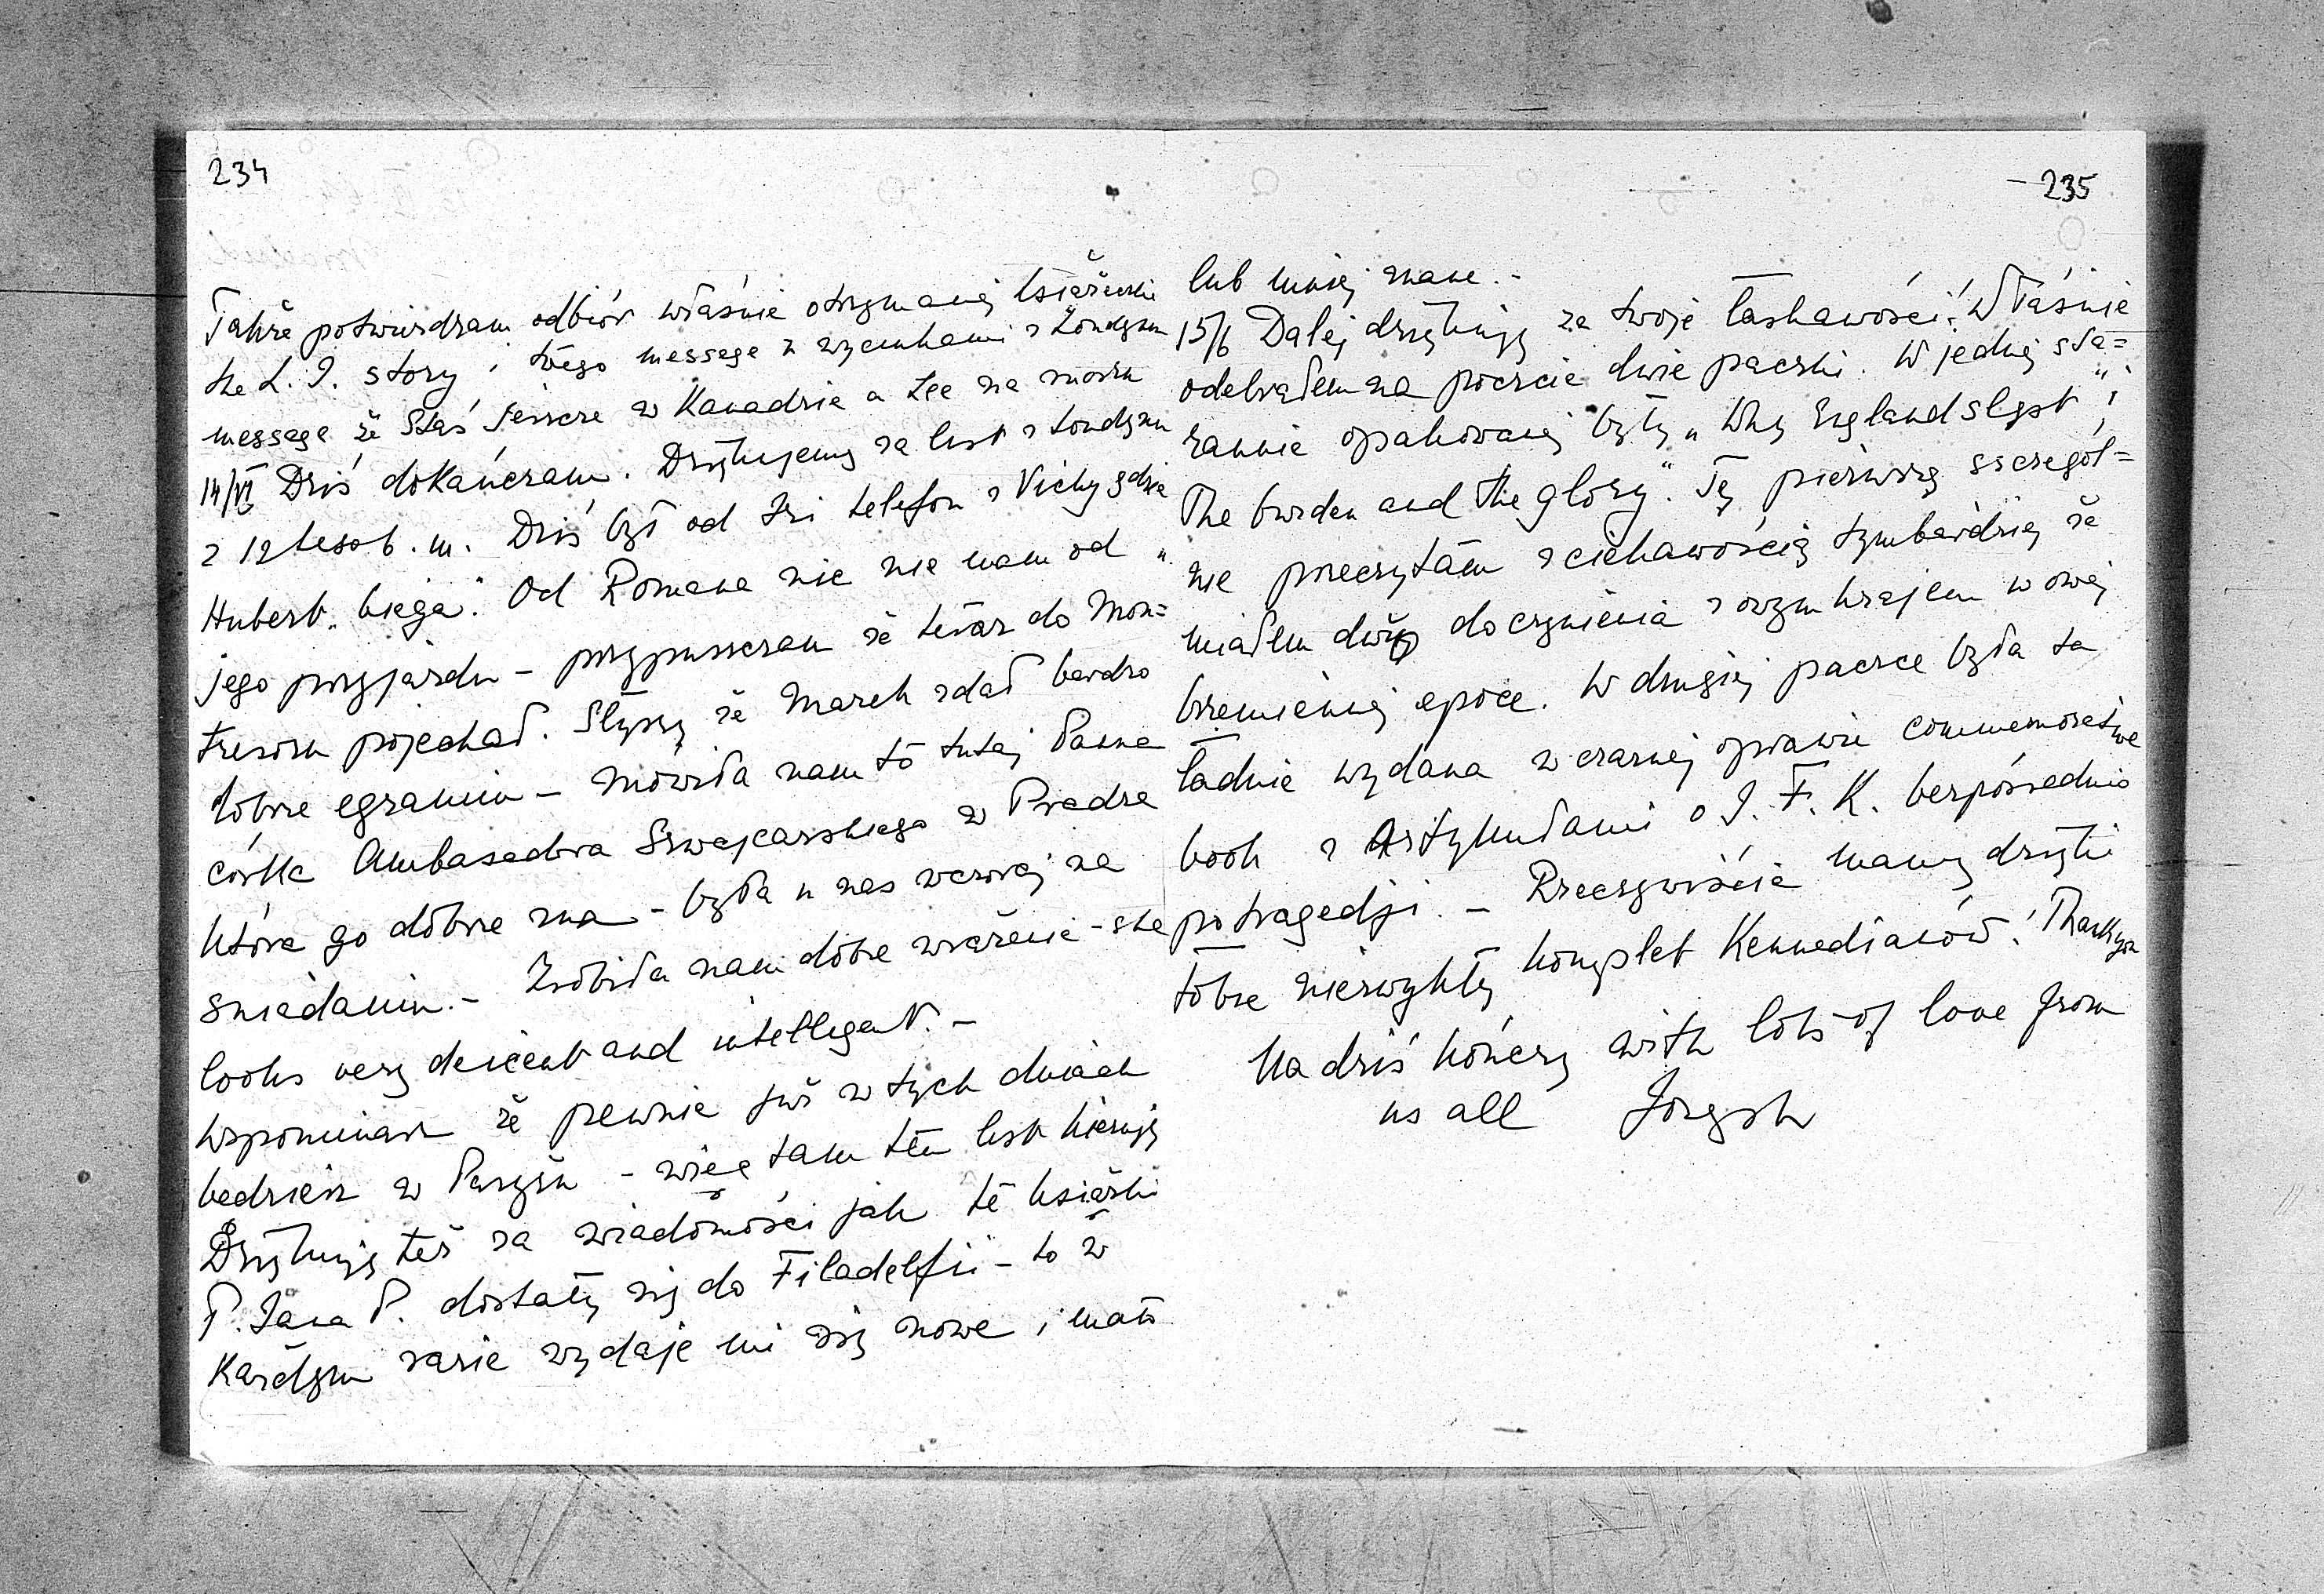 234
Także potwierdzam odbiór właśnie otrzymanej książeczki
the L. J. story i twego message z wycinkami z Londynu
message że Staś jeszcze w Kanadzie a Lee na morzu
14/VI Dziś dokańczam. Dziękujemy za list z Londynu
z 12 tego b. m. Dziś był od Izi telefon z Vichy gdzie
Hubert „biega". Od Romana nic nie mam od
jego przyjazdu – przypuszczam że teraz do Mon=
tresoru pojechał. Słyszę że Marek zdał bardzo
dobrze egzamin – mówiła nam to tutaj Panna
córka Ambasadora Szwajcarskiego w Pradze
która go dobrze zna – była u nas wczoraj na
śniadaniu. – Zrobiła nam dobre wrażenie – she
looks very decent and intelligent. –
Wspominasz że pewnie już w tych dniach
będziesz w Paryżu – więc tam ten list kieruję
Dziękuję też za wiadomości jak te książki
P. Jana P. dostały się do Filadelfii – to w
Każdym razie wydaje mi się nowe i mało
– 235
lub mniej znane. –
15/6 Dalej dziękuję za twoje łaskawości! Właśnie
odebrałem na poczcie dwie paczki. W jednej sta=
rannie opakowanej były „Why England slept" i
„The burden and the glory". Tę pierwszą szczegól=
nie przeczytam z ciekawością tymbardziej że
miałem dużo do czynienia z owym krajem w owej
brzemiennej epoce. W drugiej paczce była ta
ładnie wydana w czarnej oprawie commemorative
book z Artykułami o J. F. K. bezpośrednio
po tragedji. – Rzeczywiście mamy dzięki
tobie niezwykły komplet Kennedianów! Thank you
Na dziś kończę with lots of love from
us all Józych